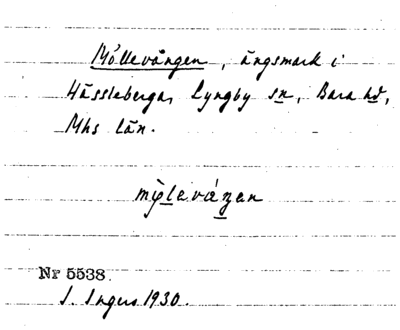 Möllevången, ängsmark i
Hässleberga, Lyngby sn, Bara hd,
Mhs län.
Nr 5538.
I. Ingers 1930.